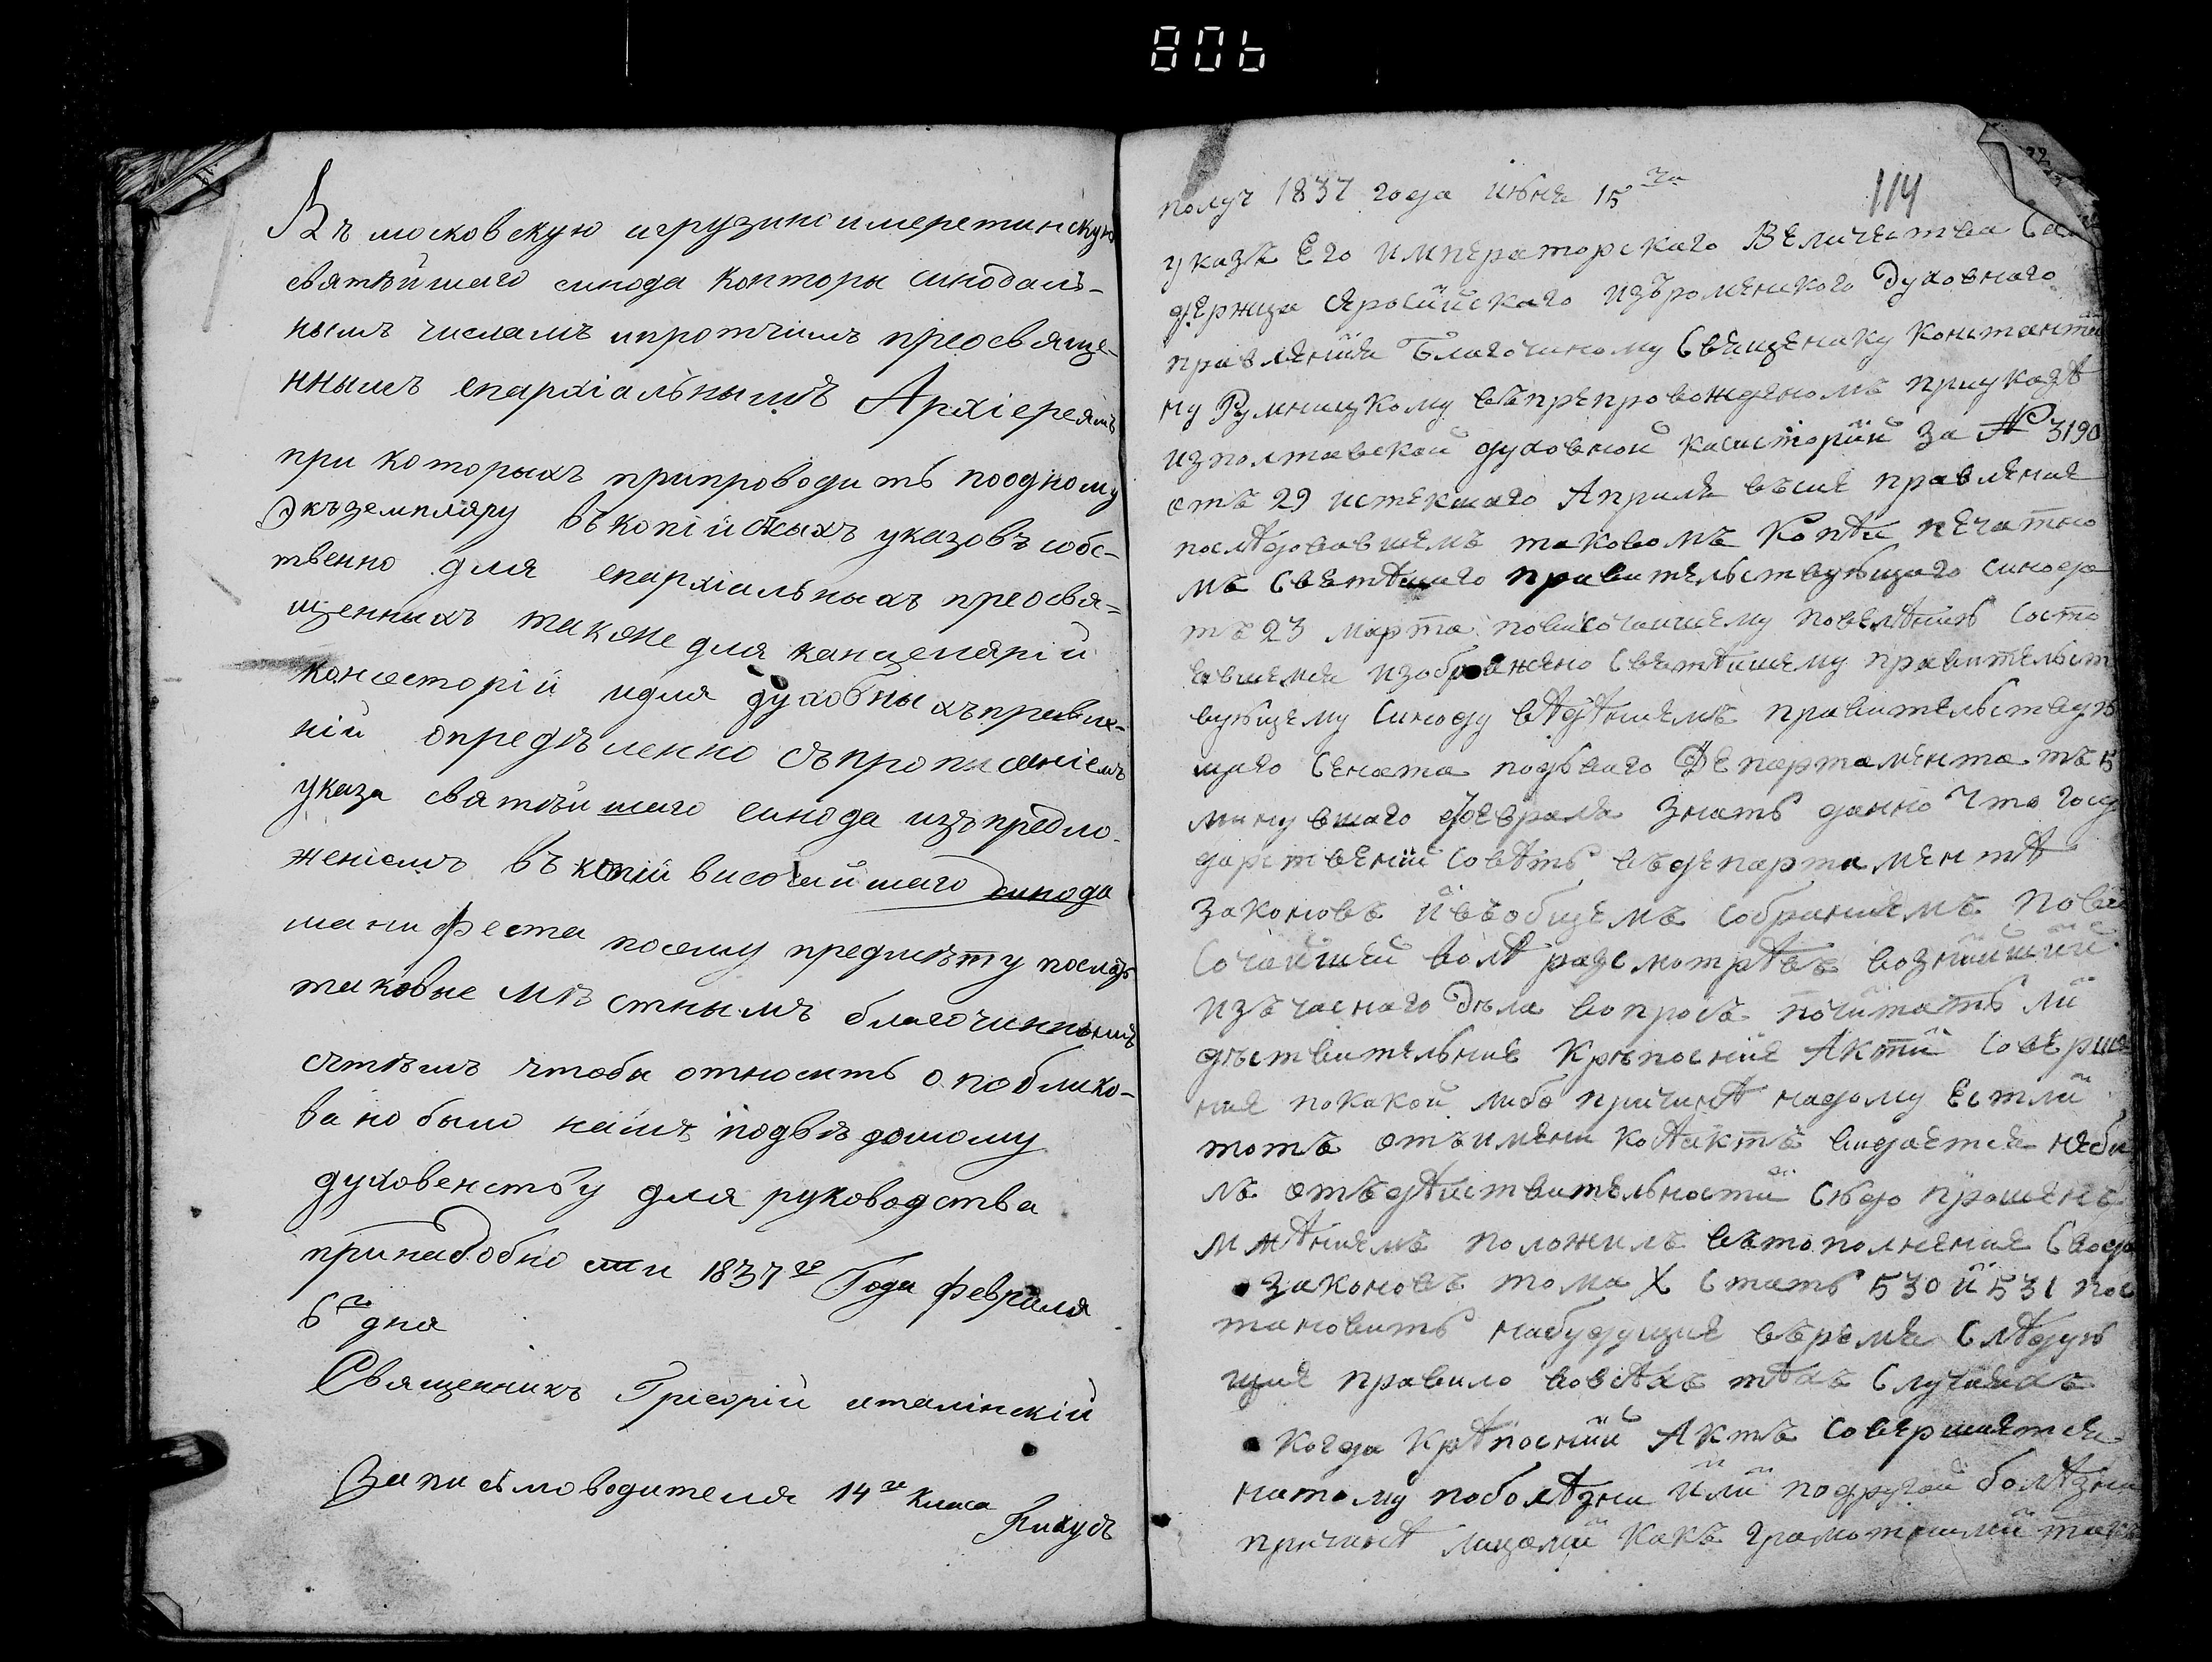 806
Въ московскую игрузино имеретинскую
святѣйшаго синода конторы синодаль-
нымъ числамъ ипротчимъ преосвяще-
ннымъ епархіальнымъ Архіереямъ
при которыхъ припроводить поодному
Экъземпляру въкопійсныхъ указовъ собс-
твенно для епархіальныхъ преосвя-
щенныхъ также для канцелярій
консосторій идля духовныхъправле-
ній опредѣленно съпрописаніемъ
указа святѣйшаго синода изъпредло-
женіемъ въ копіи височайшаго синода
манифеста посему предмѣту послать
таковые мѣстнымъ благочиннымъ
сътѣмъ чтобы относить о поблико-
вано было наимъ подвѣдомому
духовенству для руководства
принадобности 1837го Года февраля
6го дня
Священникъ Грігорій италінскій
Записмоводителя 14го класа Пихусъ
114
получ 1837 года июня 15 чи
указъ Его императорскаго Величества Са
держца сяросійскаго изъроменского Духовнаго
правленїя Благочиному Свещенику Константи
ну Румницкому въпрепровожденомъ приуказѣ
изполтавской духовной касисторїй за № 3190
отъ 29 истекшаго Апреля всие правление
последовавшемъ таковомъ Копѣи печатно
мъ Святѣшаго правительствующаго синода
тъ 23 марта повисочаишему повелѣнию состо
евшемся изображено Святѣишему правительст
вующему Синоду вѣдѣниемъ правительствую
щаго Сената подъваго Департамента тъ 15
минувшаго февраля знать данно что госу
дарственїй совѣтъ въдепартаментѣ
законовъ ивъобщемъ собраниемъ пови
сочайшей волѣ разсмотрѣвъ вознїкшїй
изъчаснаго Дѣла вопросъ почитать ли
дѣствительние крѣпоснїе Акти соверше
ние покакой либо причинѣ надому Естли
тотъ отъимени ко Актъ видается неби
лъ отъдѣиствительности сюдо прошенъ
мнѣниемъ положилъ вътополнение Свода
законовъ тома X статъ 530 и 531 пос
тановить набудущие время слѣдую
щие правило вовсѣхъ тѣхъ случаяхъ
когда крѣпоснїй Актъ совершается
натому поболѣзни или подругой болѣзни
причинѣ лицами какъ грамотними такъ